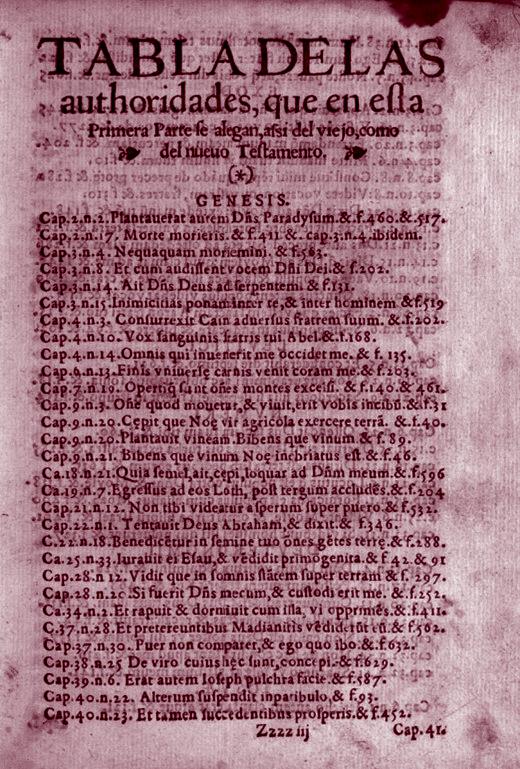 TABLA DE LAS
authoridades, que en esta
Primera Parte se alegan, assi del viejo, como
del nueuo Testamento.
(*)
GENESIS.
Cap.2.n.2. Plantauerat autem Dñs Paradysum. & f.460. & .517.
Cap.2.n.17. Morte morieris. & f.411 &. cap.3.n.4. ibidem.
Cap.3.n.4. Nequaquam moriemini. & f.563.
Cap.3.n.8. Et cum audissent vocem Dñi Dei. & f.202.
Cap.3.n.14. Ait Dñs Deus ad serpentem. & f.131.
Cap.3.n.15. Inimicitias ponam inter te, & inter hominem & f.519
Cap.4.n.3. Consurrexit Cain aduersus fratrem suum. & f.202.
Cap.4.n.10. Vox sanguinis fratris tui Abel. & f.168.
Cap.4.n.14. Omnis qui inuenerit me occidet me. & f. 135.
Cap.6.n.13. Finis vniuerse carnis venit coram me. & f.203.
Cap.7.n.19. Opertiq; sunt oñes montes excelsi. & f.140. & 461.
Cap.9.n.3. Oñe quod mouetur, & viuit, erit vobis in cibũ. & f.31
Cap.9.n.20. Cępit que Noę vir agricola exercere terrã. & f.40.
Cap.9.n.20. Plantauit vineam. Bibens que vinum & f. 89.
Cap.9.n.21. Bibens que vinum Noę inebriatus est & f.46.
Ca.18.n.21. Quia semel, ait, cępi, loquar ad Dñm meum. & f.596
Ca.19.n.7. Egressus ad eos Loth, post tergum accludẽs. & f.204
Cap.21.n.12. Non tibi videatur asperum super puero. & f.532.
Cap.22.n.1. Tentauit Deus Abraham, & dixit. & f.346.
C.22.n.18. Benedicẽtur in semine tuo oñes gẽtes terrę. & f.288.
Ca.25.n.33. Iurauit ei Esau, & vẽdidit primogenita. & f 42. & 91
Cap.28.n 12. Vidit que in somnis stãtem super terram & f. 297.
Cap.28.n.20. Si fuerit Dñs mecum, & custodierit me. & f.252.
Ca.34.n.2. Et rapuit & dormiuit cum illa, vi opprimẽs. & f.411.
C.37.n.28. Et pretereuntibus Madianitis vẽdiderũt eũ. & f.562.
Cap.37.n.30. Puer non comparet, & ego quo ibo. & f.632.
Cap.38.n.25 De viro cuius hęc sunt, concepi. & f.629.
Cap.39.n.6. Erat autem Ioseph pulchra facie. & f.587.
Cap.40.n.22. Alterum suspendit in patibulo, & f.93.
Cap.40.n.23. Et tamen succedentibus prosperis. & f.452.
Zzzz iij Cap.41.